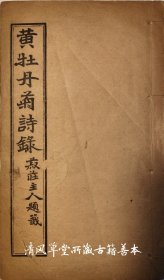 黄牡丹菊詩錄
寂莊主人題籤
清風草堂所藏古籍善本